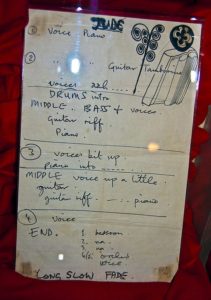 JUDE
① Voice Piano
②
.. .. .. Guitar Tambourine
voices aah
DRUMS intro
MIDDLE. BASS & voices.
Guitar riff
Piano.
③ voices bit up.
Piano into
MIDDLE voice up a little.
guitar
guitar riff. piano
④ Voice
END. 1. bassoon
2. na
3. na
voice
LONG SLOW FADE.